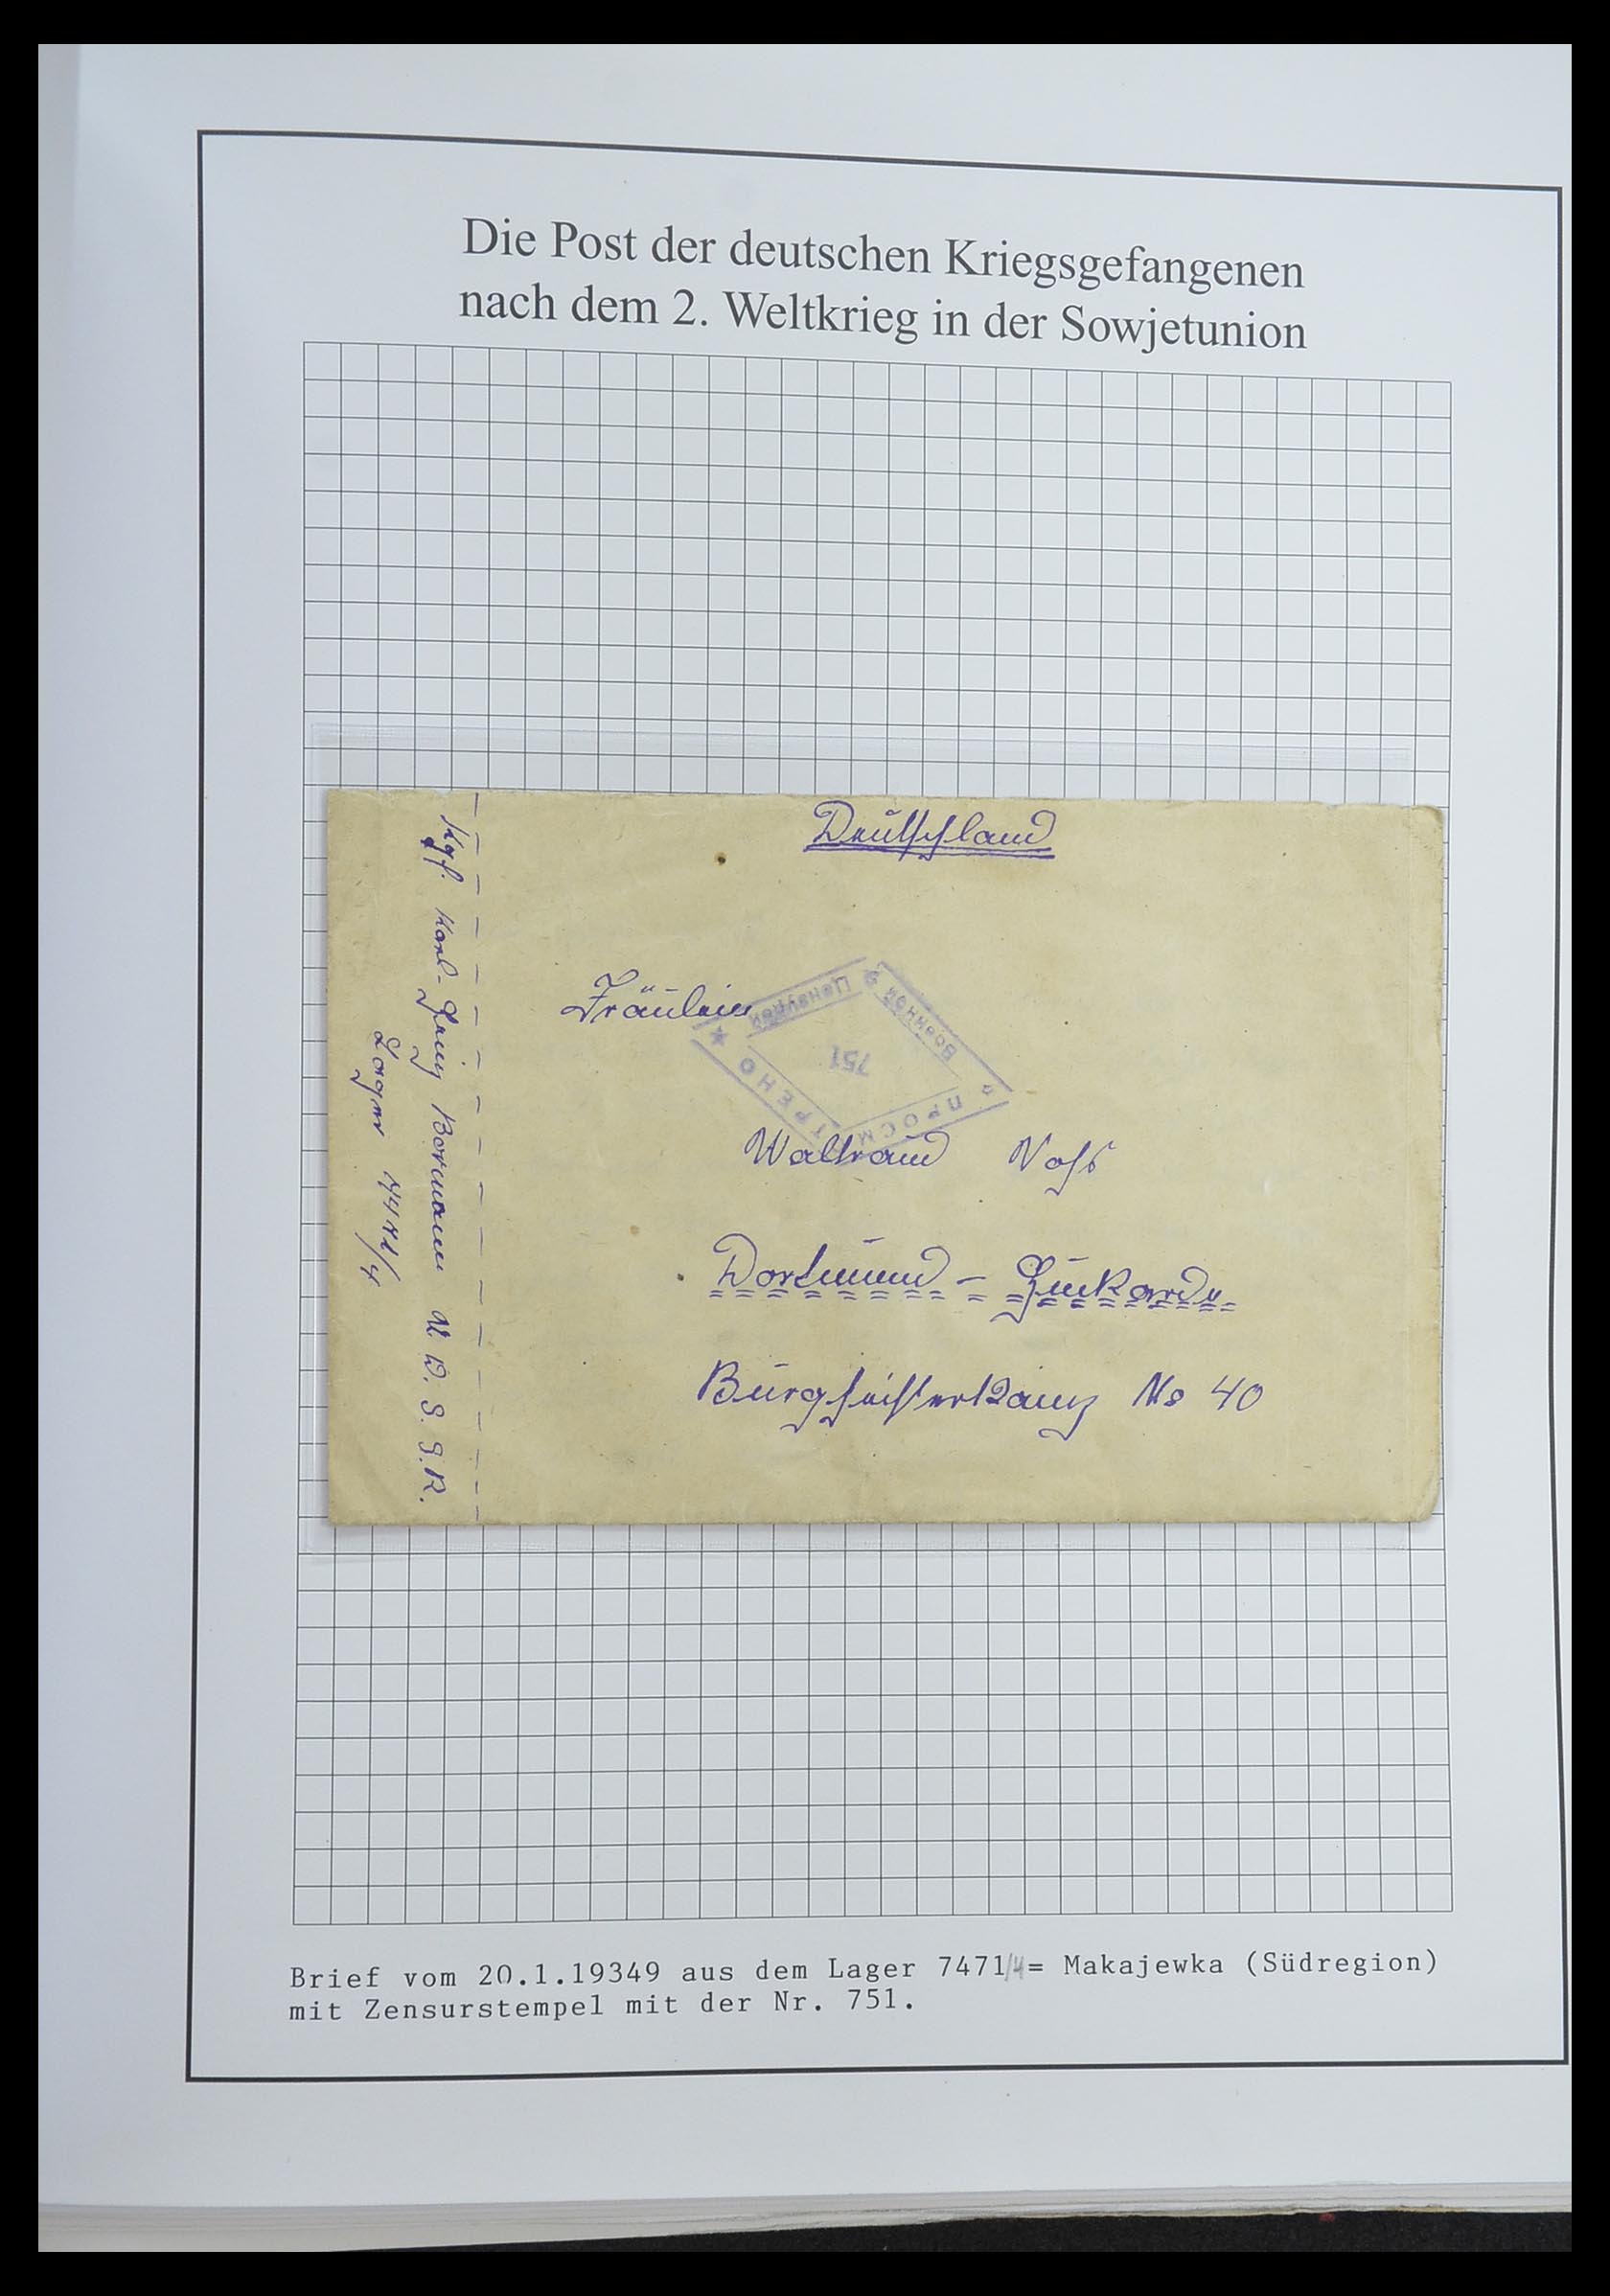 Die Post der deutschen Kriegsgefangenen
nach dem 2. Weltkrieg in der Sowjetunion
Deutschland
Fräulein
ПРОСМОТРЕНО
Военной Цензурой
751
Waltraud Voss
Dortmund - Huckarde
Burgheisterkamp No 40
Kgf. Karl-Heinz Bormann U. D. S. S. R.
Lager 7471/4
Brief vom 20.1.19349 aus dem Lager 7471/4 = Makajewka (Südregion)
mit Zensurstempel mit der Nr. 751.